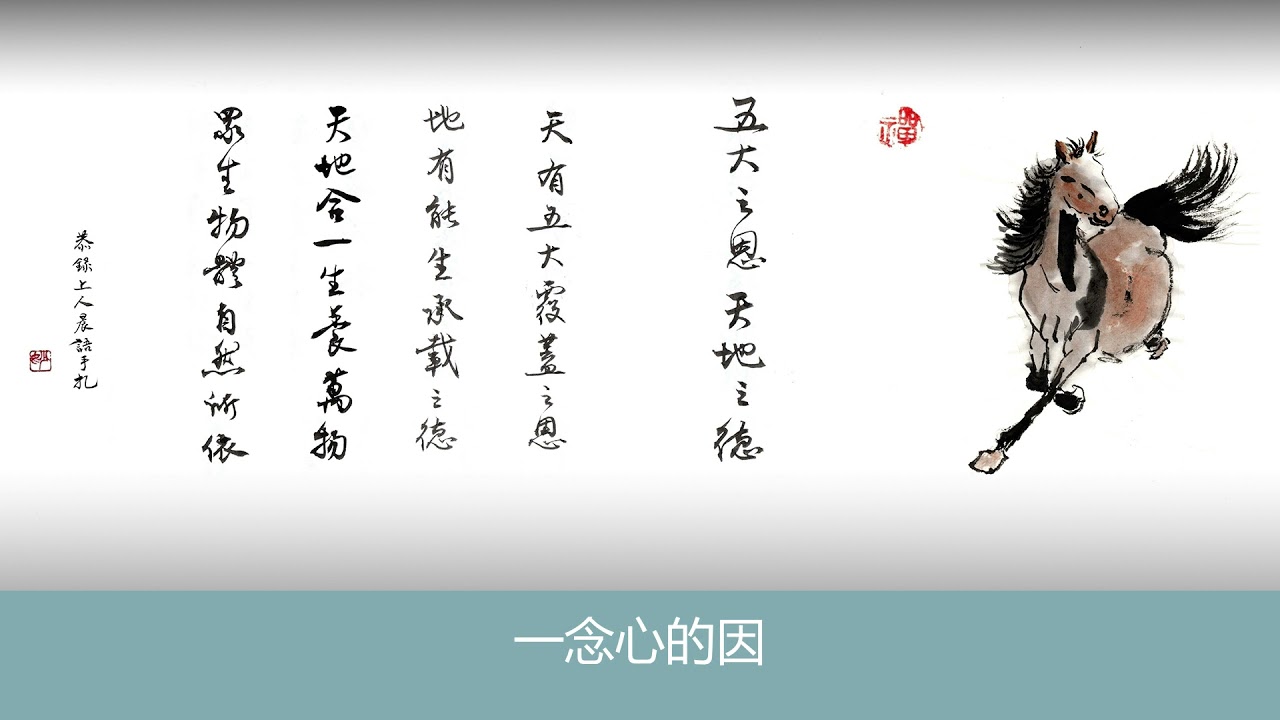 禪
五大之恩天地之德
天有五大覆蓋之恩
地有能生承載之德
天地合一生養萬物
眾生物體自然所依
恭錄上人晨語手札
一念心的因